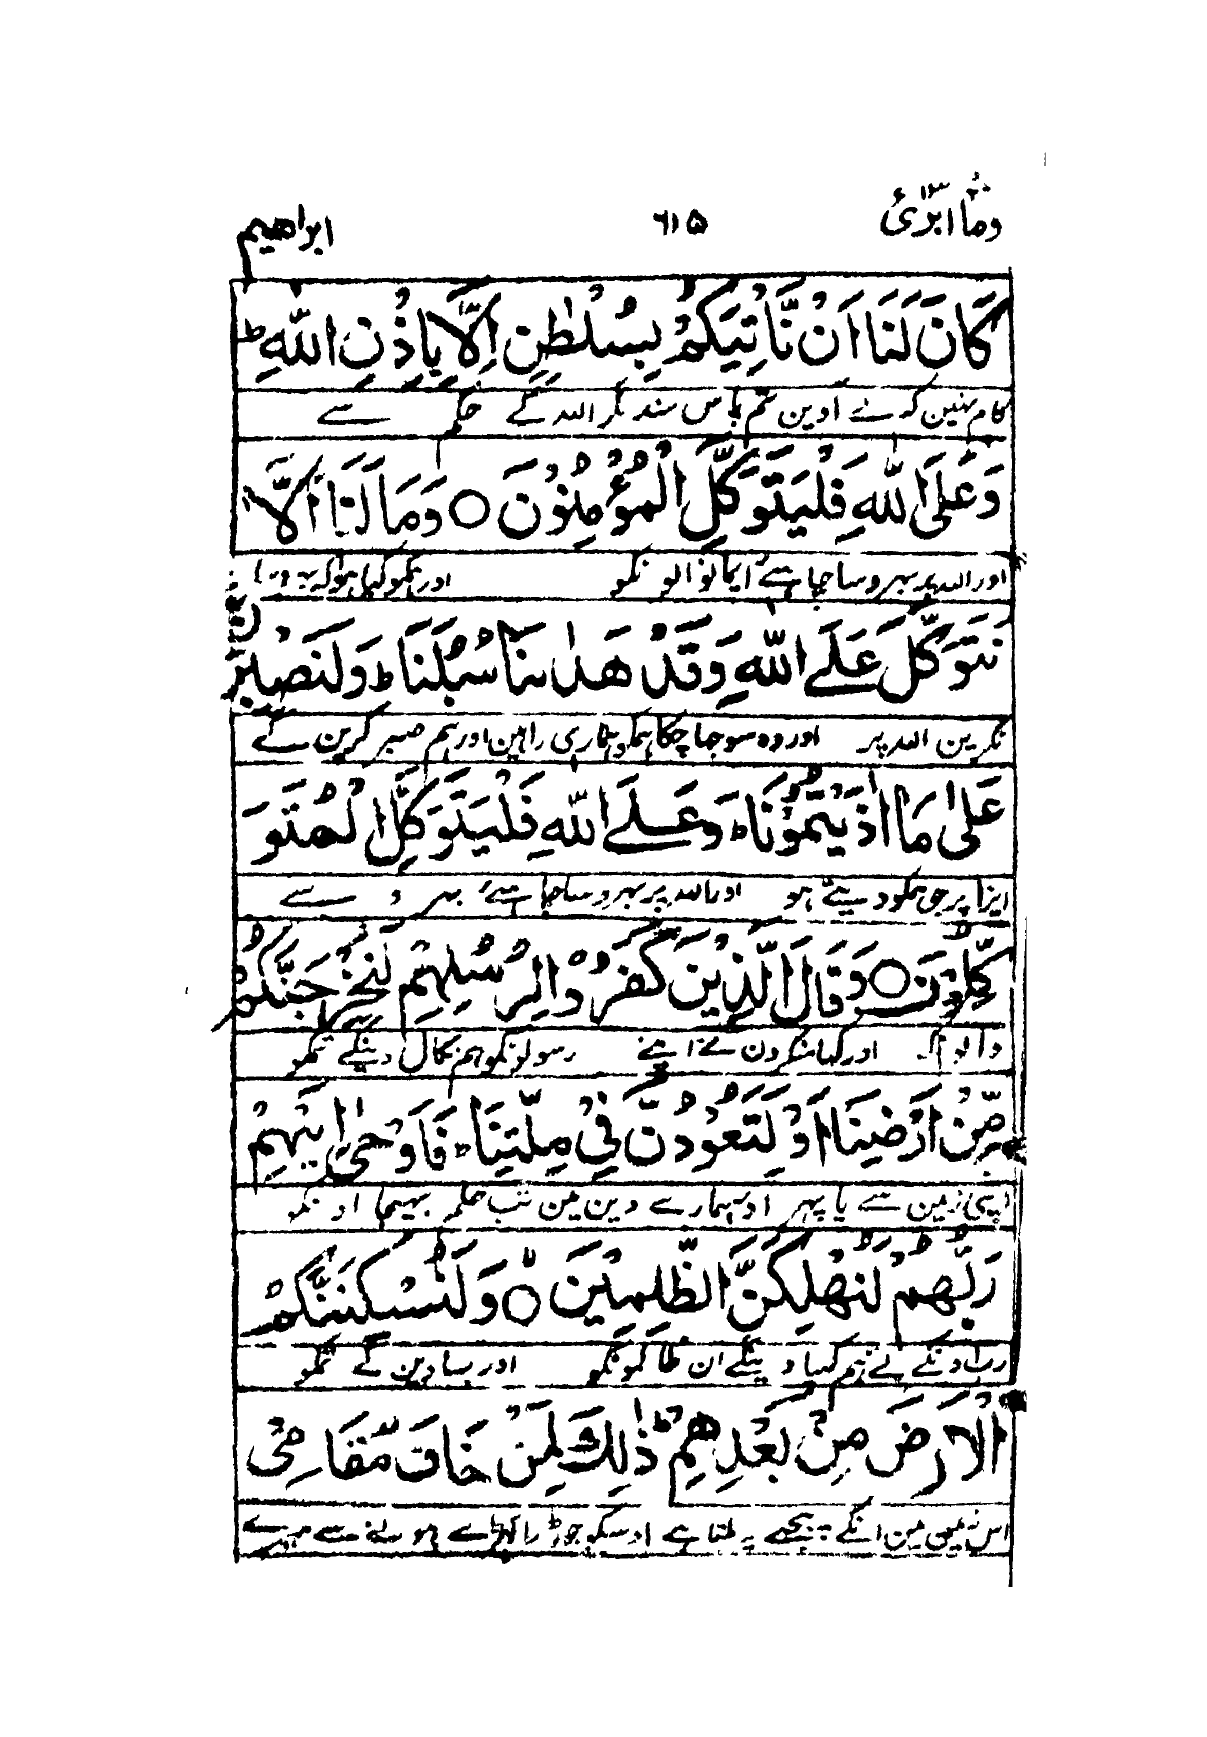 وما ابرئ ۱۳ ۶۱۵ ابراهيم
كَانَ لَنَا اَنْ نَّاْتِيَكُمْ بِسُلْطٰنٍ اِلَّا بِاِذْنِ اللّٰهِ ؕ
کام نہین کہ لے آوین تم پاس سند مگر اللہ کے حکم سے
وَعَلَى اللّٰهِ فَلْيَتَوَكَّلِ الْمُؤْمِنُوْنَ ○ وَمَا لَنَا اَلَّا
اور اللہ پر بہروسا چاہئے ایمانوالونکو اور ہمکو کیا ہوا کہ بہروسا
نَتَوَكَّلَ عَلَے اللّٰهِ وَقَدْ هَدٰىنَا سُبُلَنَا ؕ وَلَنَصْبِرَنَّ
نکرین اللہ پر اور وہ سوجھا چکا ہمکو ہماری راہین اور ہم صبر کرین گے
عَلٰى مَا اٰذَيْتُمُوْنَا ؕ وَعَلَے اللّٰهِ فَلْيَتَوَكَّلِ الْمُتَوَ
ایزا پر جو ہمکو دیتے ہو اور اللہ پر بہروسا چاہئے بہرو سے
كِّلُوْنَ ○ وَقَالَ الَّذِيْنَ كَفَرُوْا لِرُسُلِهِمْ لَنُخْرِجَنَّكُمْ
والونکو اور کہا منکرون نے اپنے رسولونکو ہم نکال دینگے تمکو
مِّنْ اَرْضِنَا اَوْ لَتَعُوْدُنَّ فِيْ مِلَّتِنَا ؕ فَاَوْحٰى اِلَيْهِمْ
اپنی زمین سے یا پہر آو ہمارے دین مین تب حکم بہیجا اونکو
رَبُّهُمْ لَنُهْلِكَنَّ الظّٰلِمِيْنَ ○ وَلَنُسْكِنَنَّكُمُ
رب اونکے نے ہم کہپا دینگے ان ظالمونکو اور بسا دین گے تمکو
الْاَرْضَ مِنْ بَعْدِهِمْ ؕ ذٰلِكَ لِمَنْ خَافَ مَقَامِيْ
اس زمین مین انکے پیچھے یہ ملتا ہے اوسکو جو ڈرا کھڑے ہونے سے میرے